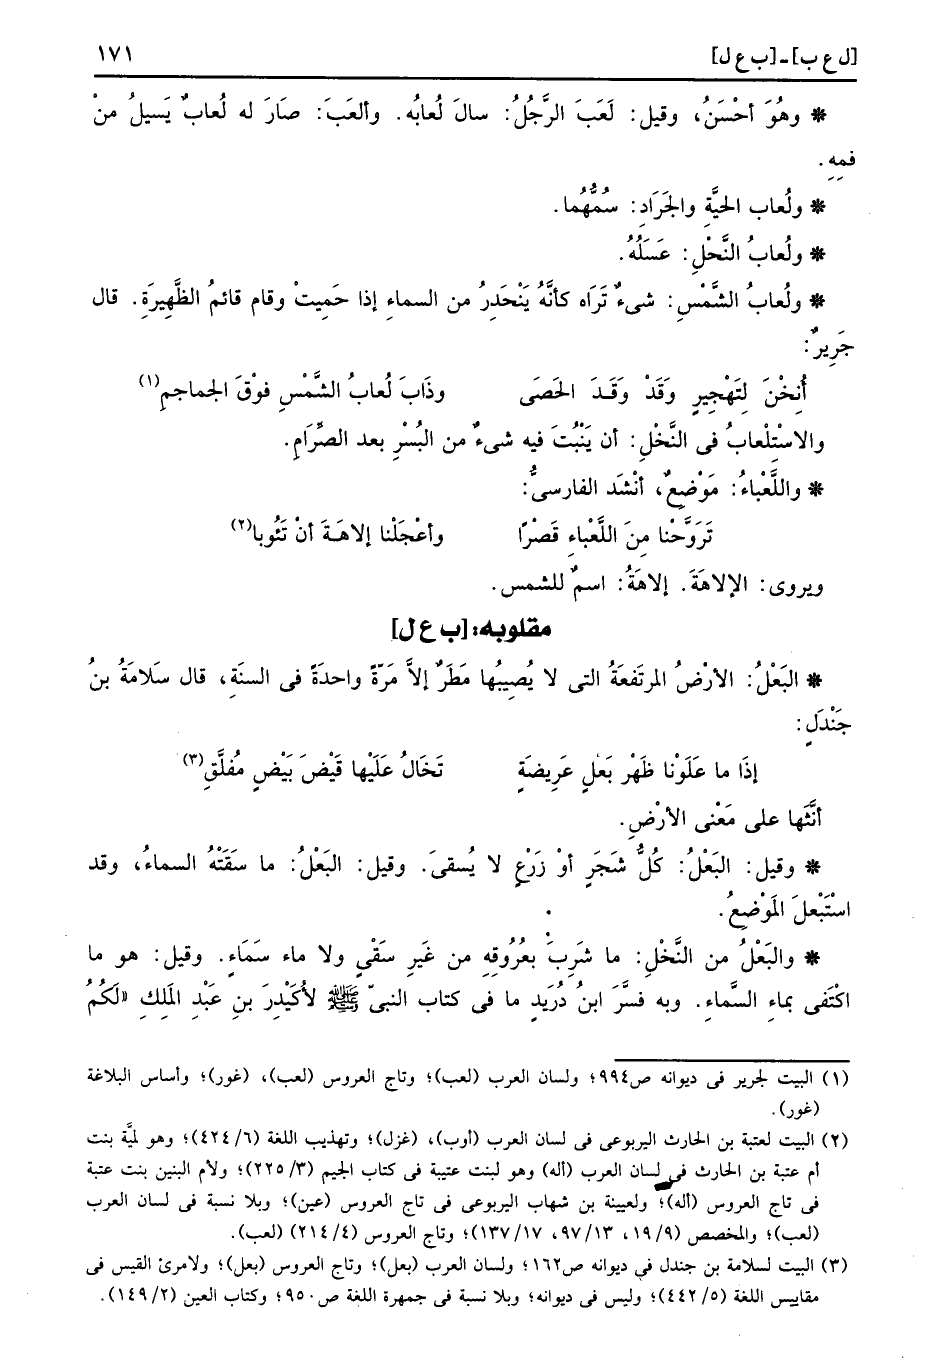 [ل ع ب] - [ب ع ل] ١٧١
* وهُوَ أحْسَنُ، وقيل: لَعَبَ الرَّجُلُ: سالَ لُعابُه. وألعَبَ: صَارَ له لُعابٌ يَسيلُ منْ
فمِهِ.
* ولُعاب الحيَّةِ والجَرَادِ: سُمُّهُما.
* ولُعابُ النَّحْلِ: عَسَلُهُ.
* ولُعابُ الشَّمْسِ: شىءٌ تَرَاه كأنَّهُ يَنْحَدِرُ من السماءِ إذا حَمِيتْ وقام قائمُ الظَّهِيرَةِ. قال
جَرِيرٌ:
أُنِخْنَ لِتَهْجِيرٍ وَقَدْ وَقَدَ الحَصَى وذَابَ لُعابُ الشَّمْسِ فوْقَ الجماجمِ(١)
والاسْتِلْعابُ فى النَّخْلِ: أن يَنْبُتَ فيه شىءٌ من البُسْرِ بعد الصِّرَامِ.
* واللَّعْباءُ: مَوْضِعٌ، أنْشَد الفارسىُّ:
تَرَوَّحْنا مِنَ اللَّعْباءِ قَصْرًا وأعْجَلْنا إلاهَةَ أنْ تَئُوبا(٢)
ويروى: الإلاهَةَ. إلاهَةُ: اسمٌ للشمس.
مقلوبه: [ب ع ل]
* البَعْلُ: الأرْضُ المرتَفعَةُ التى لا يُصِيبُها مَطَرٌ إلاَّ مَرّةً واحدَةً فى السنَةِ، قال سَلامَةُ بنُ
جَنْدَلٍ:
إذَا ما عَلَوْنا ظَهْر بَعْلٍ عَرِيضَةٍ تَخَالُ عَلَيْها قَيْضَ بَيْضٍ مُفلَّقِ(٣)
أنَّثَها على مَعْنى الأرْضِ.
* وقيل: البَعْلُ: كُلُّ شَجَرٍ أوْ زَرْعٍ لا يُسقىَ. وقيل: البَعْلُ: ما سَقَتْهُ السماءُ، وقد
اسْتَبْعلَ المَوْضِعُ.
* والبَعْلُ من النَّخْلِ: ما شَرِبَ بعُرُوقِهِ من غَيرِ سَقْىٍ ولا ماء سَمَاءٍ. وقيل: هو ما
اكْتَفى بماءِ السَّماءِ. وبه فسَّرَ ابنُ دُرَيدٍ ما فى كتاب النبىّ ﷺ لأُكَيْدِرَ بنِ عَبْدِ المَلِكِ «لَكُمُ
(١) البيت لجرير فى ديوانه ص٩٩٤؛ ولسان العرب (لعب)؛ وتاج العروس (لعب)، (غور)؛ وأساس البلاغة
(غور).
(٢) البيت لعتبة بن الحارث اليربوعى فى لسان العرب (أوب)، (غزل)؛ وتهذيب اللغة (٦/ ٤٢٤)؛ وهو لميَّة بنت
أم عتبة بن الحارث فى لسان العرب (أله) وهو لبنت عتيبة فى كتاب الجيم (٣/ ٢٢٥)؛ ولأم البنين بنت عتبة
فى تاج العروس (أله)؛ ولعيينة بن شهاب اليربوعى فى تاج العروس (عين)؛ وبلا نسبة فى لسان العرب
(لعب)؛ والمخصص (٩/ ١٩، ١٣/ ٩٧، ١٧/ ١٣٧)؛ وتاج العروس (٤/ ٢١٤) (لعب).
(٣) البيت لسلامة بن جندل فى ديوانه ص١٦٢؛ ولسان العرب (بعل)؛ وتاج العروس (بعل)؛ ولامرئ القيس فى
مقاييس اللغة (٥/ ٤٤٢)؛ وليس فى ديوانه؛ وبلا نسبة فى جمهرة اللغة ص٩٥٠؛ وكتاب العين (٢/ ١٤٩).